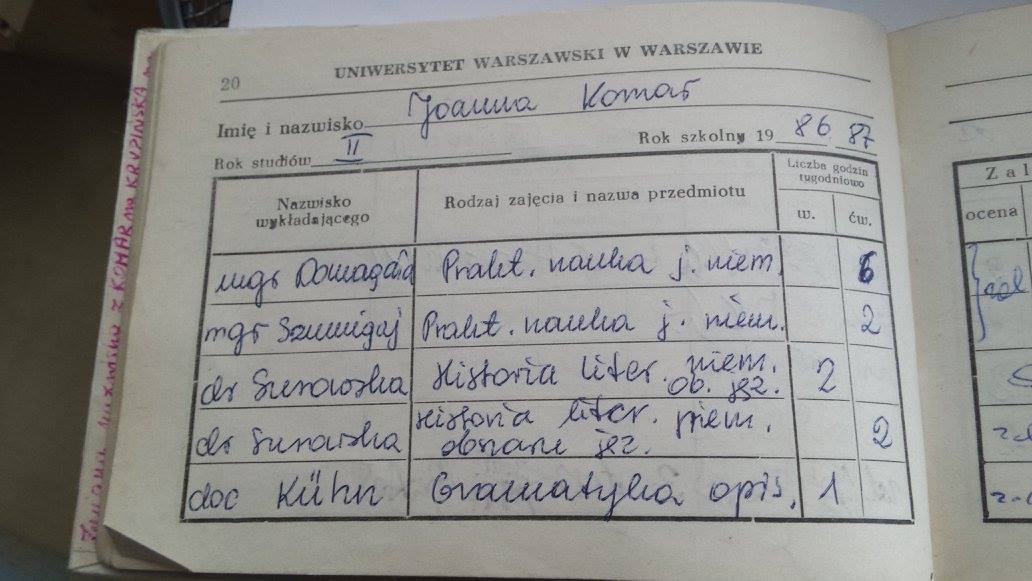 20
UNIWERSYTET WARSZAWSKI W WARSZAWIE
Imię i nazwisko Joanna Komar
Rok studiów II
Rok szkolny 19 86 87
Nazwisko wykładającego
Rodzaj zajęcia i nazwa przedmiotu
Liczba godzin tygodniowo
w. ćw.
mgr Domagała Prakt. nauka j. niem. 6
mgr Szmigaj Prakt. nauka j. niem. 2
dr Surowska Historia liter. niem. ob. jęz. 2
dr Surowska Historia liter. niem. obszaru jęz. 2
doc Kühn Gramatyka opis. 1
Zal
ocena
zal
Zmiana nazwiska z KOMAR na KRUPIŃSKA